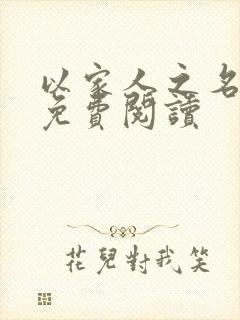 以家人之名
免費閱讀
花兒對我笑